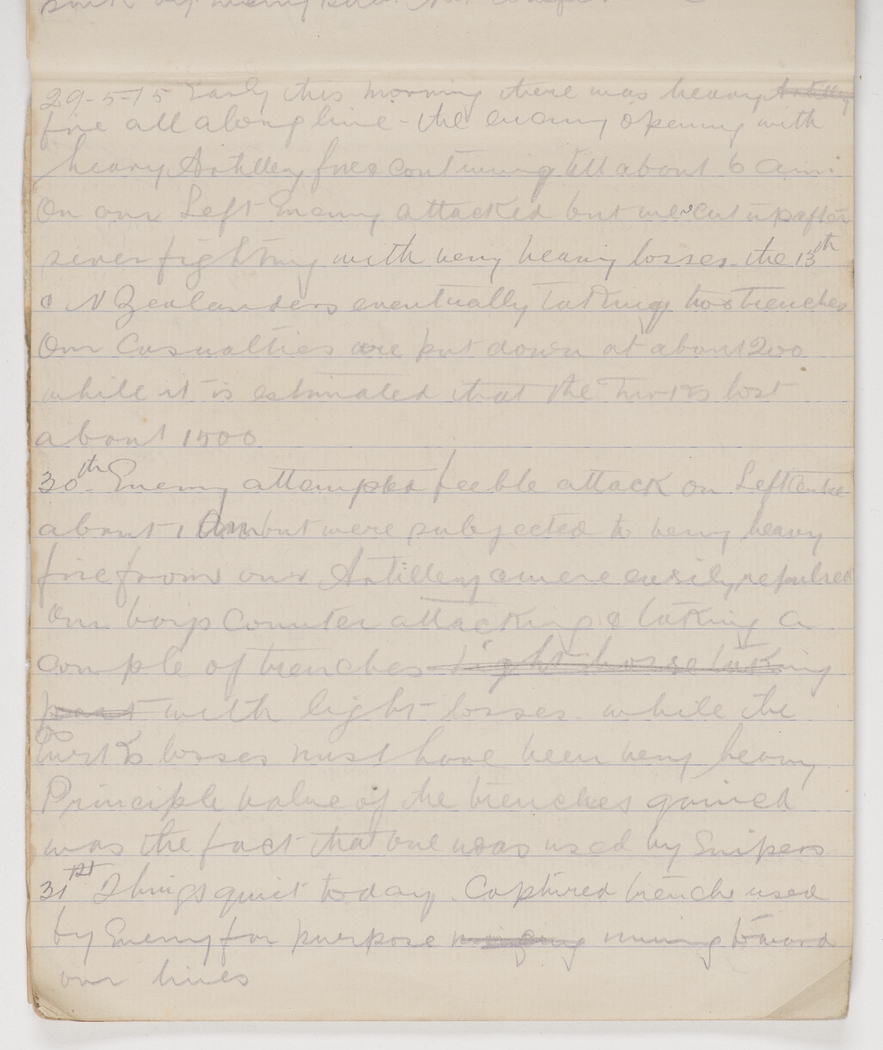 29-5-15 Early this morning there was heavy Artillery
fire all along line - the enemy opening with
heavy Artilley fires continuing till about 6 am.
On our Left Enemy attacked but were cut up after
sever fighting with very heavy losses. the 13th
& N Zealanders eventually taking two trenches
Our Casualties are put down at about 200
while it is estimated that the Turks lost
about 1500
30th Enemy attempted feeble attack on Left Centre
about 1 Am but were subjected to very heavy
fire from our Artillery & were easily repulsed
Our boys Counter attacking & taking a
couple of trenches light horse taking
part with light losses. while the
Turks losses must have been very heavy
Principle value of the trenches gained
was the fact that one was used by Snipers
31st Things quiet today. Captured trench used
by Enemy for purpose mining toward
our lines